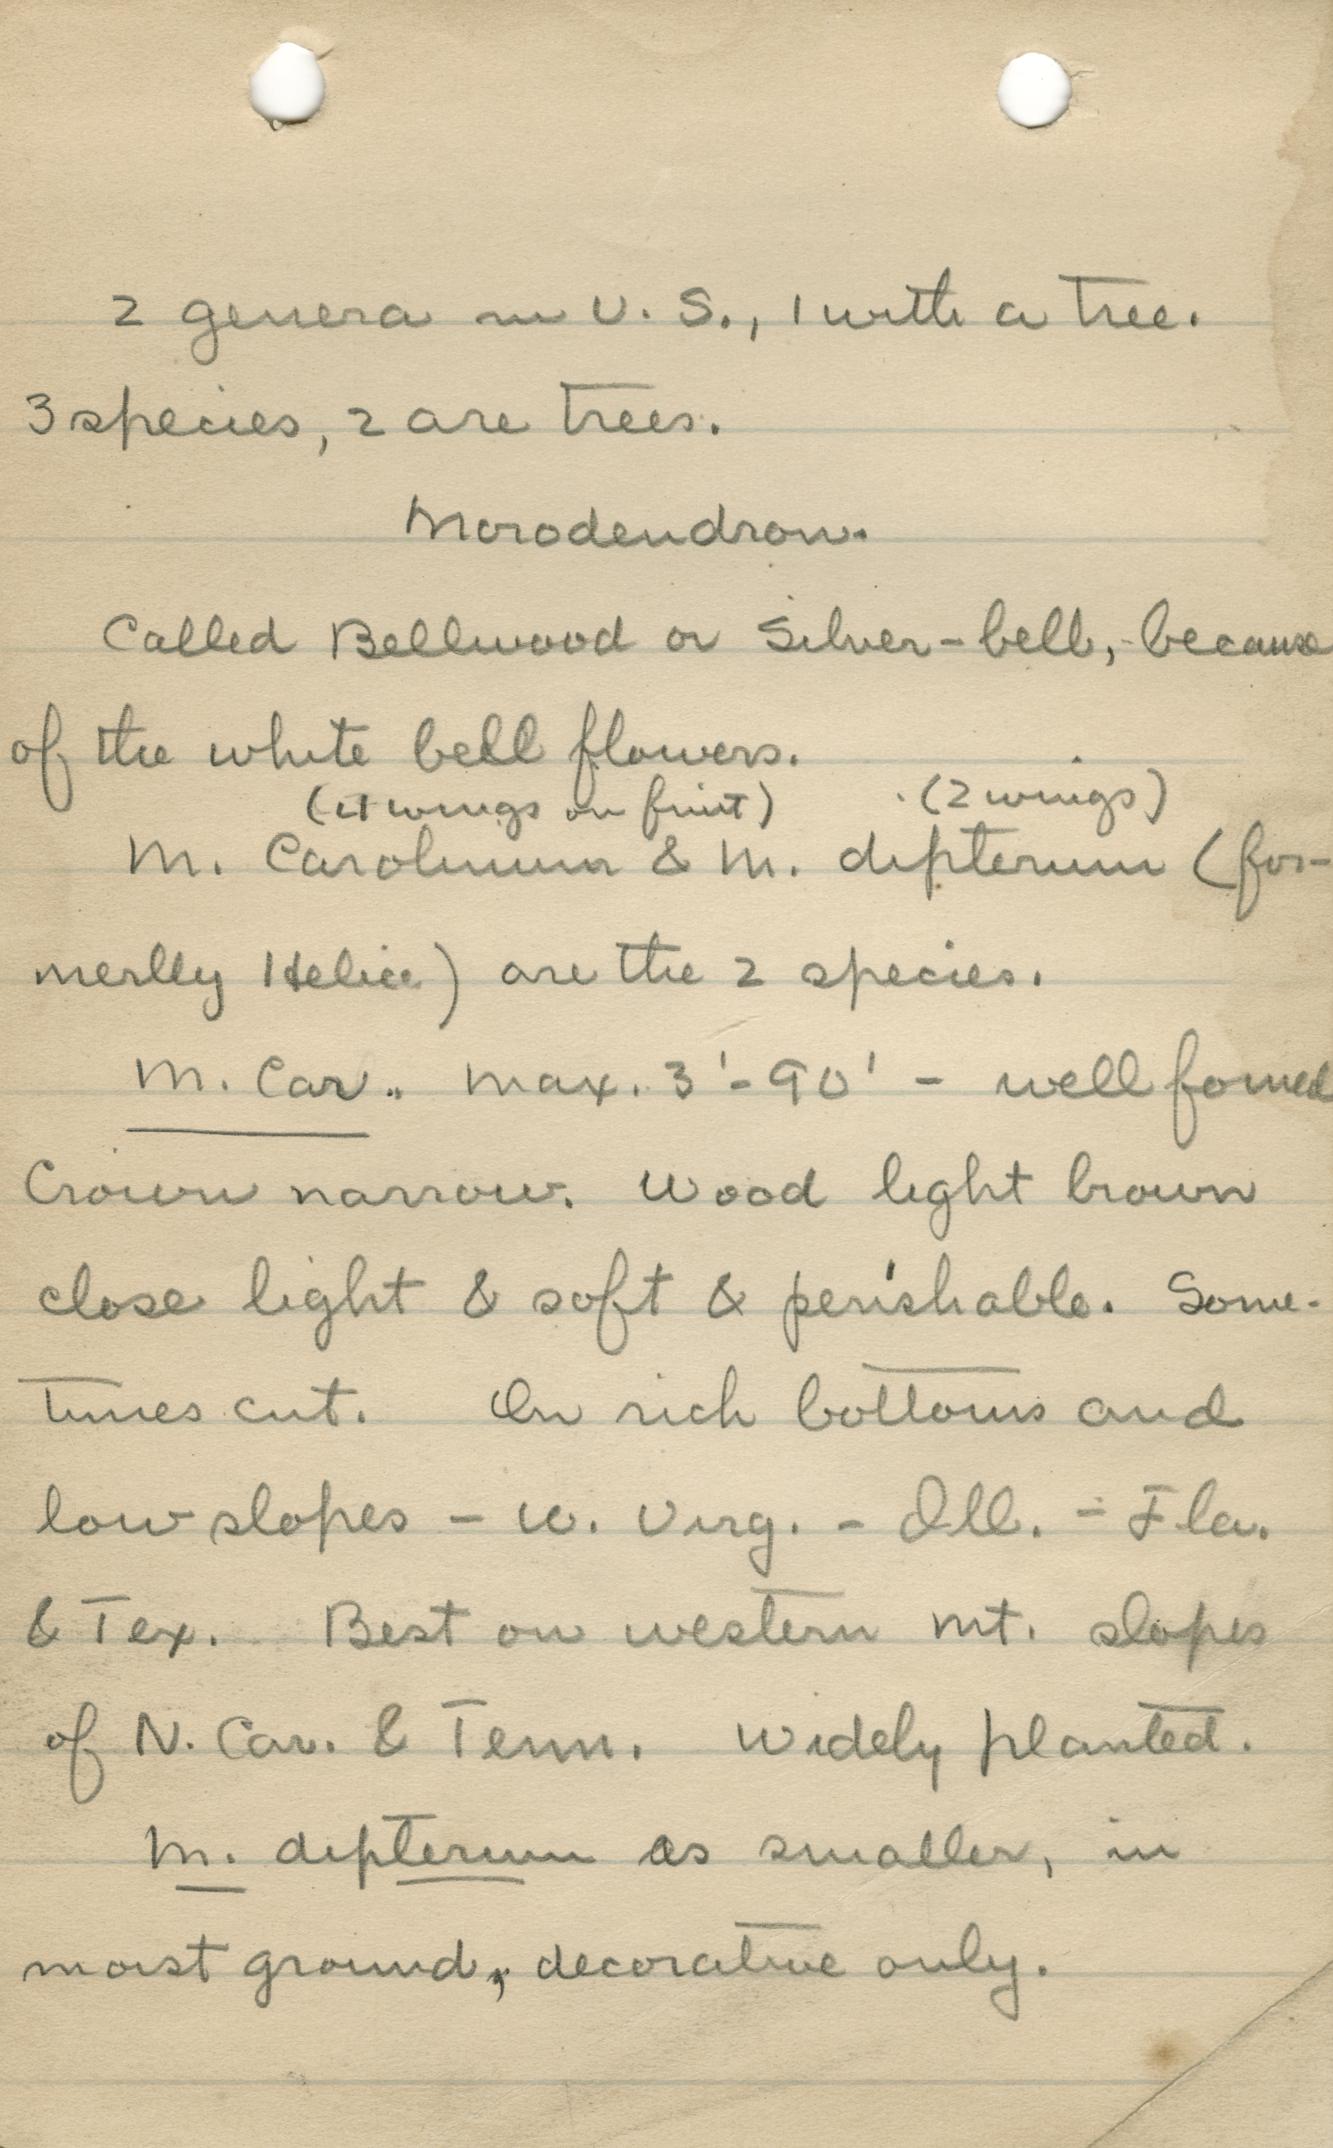 2 genera in U. S., 1 with a tree.
3 species, 2 are trees.
Morodendron.
Called Bellwood or Silver-bell, because
of the white bell flowers.
(4 wings on fruit) (2 wings)
M. Carolinum & M. dipterum (for-
merlly) are the 2 species.
M. Car. max. 3'-90' - well formed
Crown narrow. Wood light brown
close light & soft & perishable. Some-
times cut. On rich bottoms and
low slopes - W. Virg. - Ill. - Fla.
& Tex. Best on western mt. slopes
of N. Car. & Tenn. Widely planted.
M. dipterum as smaller, in
moist ground, decorative only.